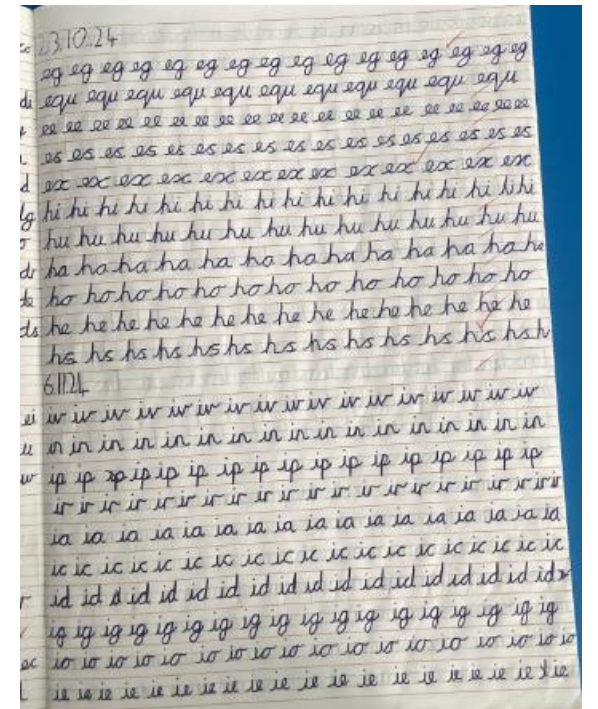 23.10.24
eg eg eg eg eg eg eg eg eg eg eg eg eg eg eg eg
equ equ equ equ equ equ equ equ equ equ equ
ee ee ee ee ee ee ee ee ee ee ee ee ee ee ee ee ee ee
es es es es es es es es es es es es es es es es es
ex ex ex ex ex ex ex ex ex ex ex ex ex
hi hi hi hi hi hi hi hi hi hi hi hi hi hi hi hi hi
hu hu hu hu hu hu hu hu hu hu hu hu hu hu
ha ha ha ha ha ha ha ha ha ha ha ha ha
ho ho ho ho ho ho ho ho ho ho ho ho ho
he he he he he he he he he he he he he he
hs hs hs hs hs hs hs hs hs hs hs hs hs hs h
6.11.24
iv iv iv iv iv iv iv iv iv iv iv iv iv iv iv iv iv
in in in in in in in in in in in in in in in in
ip ip ip ip ip ip ip ip ip ip ip ip ip ip ip
ir ir ir ir ir ir ir ir ir ir ir ir ir ir ir ir ir ir ir ir
ia ia ia ia ia ia ia ia ia ia ia ia ia ia ia ia
ic ic ic ic ic ic ic ic ic ic ic ic ic ic ic ic ic ic
id id id id id id id id id id id id id id id id id
ig ig ig ig ig ig ig ig ig ig ig ig ig ig ig ig
io io io io io io io io io io io io io io io io io
ie ie ie ie ie ie ie ie ie ie ie ie ie ie ie ie ie ie